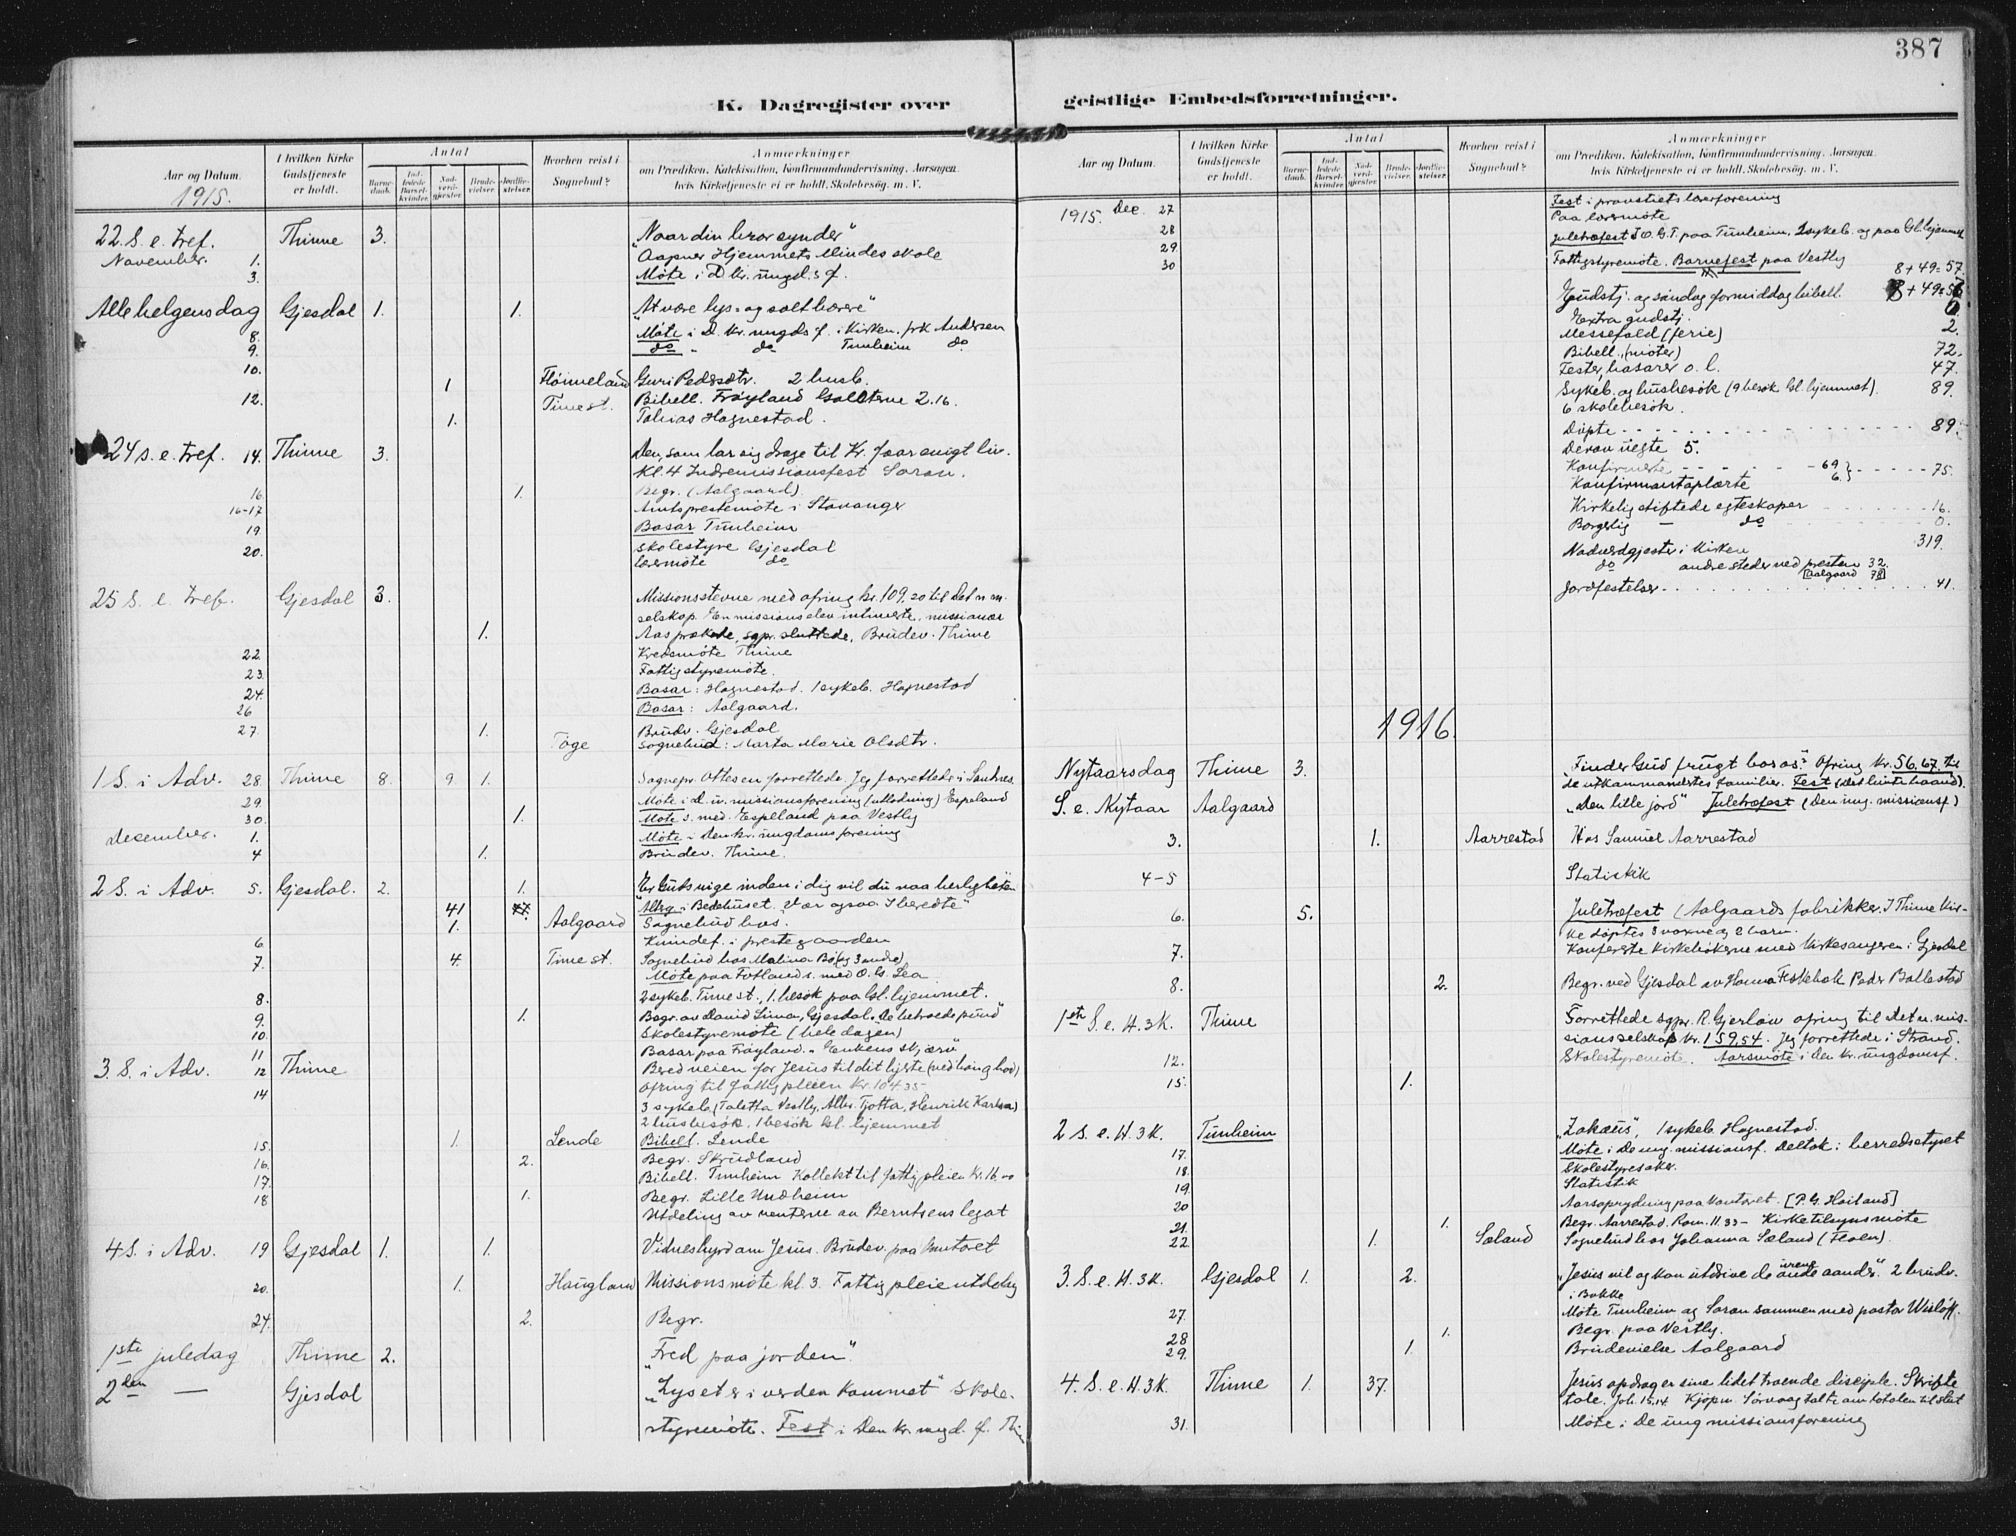 387
K. Dagregister over geistlige Embedsforretninger.
Aar og Datum. I hvilken Kirke Gudstjeneste er holdt. Antal Barnedaab. Indledede Barselkvinder. Nadverdgjester. Brudevielser. Jordfæstelser. Hvorhen reist i Sognebud? Anmærkninger om Prædiken, Katekisation, Konfirmandundervisning, Aarsagen hvis Kirketjeneste ei er holdt, Skolebesøg, m. V.
1915.
22. S. e. tref. Thime 3. "Naar din bror synder"
November. 1. Aapner Hjemmets Mindes skole
3. Møte i D. kr. ungd.s f.
Alle helgensdag Gjesdal 1. 1. "At være lys- og saltbærere"
8. Møte i D. kr. ungds f. i Kirken. frk Andersen
9. do " do Tunheim do
10. 1 Guri Pedersdtr. 2 husb.
12. Time st. Bibell. Frøyland 2.16.
1. Tobias Hognestad.
24 s. e. tref. 14. Thime 3. Den, som lar sig drage til Kr. faar evigt liv.
Kl. 4 Indremissionsfest Saron.
16. 1. Begr. (Aalgaard)
16-17 Amtsprestemøte i Stavanger
19. Basar Tunheim
20. Skolestyre Gjesdal
lærermøte do
25 S. e. tref. Gjesdal 3. Missionsstevne med ofring kr. 109.20 til Det n. m.
selskap. En missionselev intimerte, missionær
1. Aas prækede, sgpr. sluttede. Brudev. Thime
22. Kredsmøte Thime
23. Fattigstyremøte.
24. Basar: Hognestad. 1 sykeb. Hognestad
26 Basar: Aalgaard.
27. 1. Brudv. Gjesdal
Tøge Sognebud: Marta Marie Olsdtr.
1 S. i Adv. 28. Thime 8. 9. 1. Sognepr. Ottesen forrettede. Jeg forrettede i Sandnes.
29. Møte i d. kv. missionsforening (utlodning) Espeland
30. 1. Møte s. med. Espeland paa Vestly
December. 1. Møte i den kr. ungdomsforening
4 1. Brudev. Thime.
2 S. i Adv. 5. Gjesdal. 2. 1. "Er Guds rige inden i dig vil du naa herligheten"
41 Altrg. i Bedehuset. "Vær ogsaa I beredte"
1. Aalgaard Sognebud hos
6. Kvindef. i prestegaarden
7. 4. Time st. Sognebud hos Malina Bø (og 3 andre)
Møte paa Fotland s. med O. G. Lea
8. 2 sykeb. Time st., 1. besøk paa Gl. hjemmet.
9. 1. Begr. av David Lima, Gjesdal. "De betroede pund"
10. Skolestyremøte (hele dagen)
11 Basar paa Frøyland. "Enkens skjærv"
3. S. i Adv. 12 Thime Bered veien for Jesus til dit hjerte
14 Ofring til fattigpleien Kr. 104.35
3 sykeb. (Taletta Vestly, Alb. Tjotta, Henrik Karlsen)
2 husbesøk, 1 besøk Gl. hjemmet
15. 1. Lende Bibell. Lende
16. 2. Begr. Skrudland
17. Bibell. Tunheim Kollekt til fattigpleien Kr. 16.00
18 1. Begr. Lille Undheim
Utdeling av renterne av Berntsens legat
4 S. i Adv. 19 Gjesdal 1. 1. Vidnesbyrd om Jesus. Brudev. paa kontoret
20. 1. Haugland Missionsmøte kl. 3. Fattigpleieutdeling
24. 2. Begr.
1ste juledag Thime 2. "Fred paa jorden".
2den — Gjesdal "Lyset er i verden kommet" Skole-
styremøte. Fest i Den kr. ungd. f.
1915. Dec. 27 Fest i provstiets lærerforening
28 Paa lærermøte
29 Juletræfest I.O.G.T. paa Tunheim, 2 sykeb. og paa Gl. hjemmet
30 Fattigstyremøte. Barnefest paa Vestly
8 + 49 = 57.
Gudstj. og søndag formiddag bibell. 8 + 49 =
Extra gudstj. 0
Messefald (ferie) 2.
Bibell. (møter) 72.
Fester, basarer o. l. 47.
Sykeb. og husbesøk (9 besøk Gl. hjemmet). 89.
6 skolebesøk.
Døpte 89.
Derav uegte 5.
Konfirmerte 69 75.
6.
Kirkelig stiftede egteskaper 16.
Borgerlig — do 0.
Nadverdgjester i Kirken 319.
do andre steder ved presten 32.
[Aalgaard 78]
Jordfestelser 41.
1916.
Nytaarsdag Thime 3. "Finder Gud frugt hos os?" Ofring Kr. 56.67 til
de utkommandertes familier. Fest (det hvite baand).
S. e. Nytaar Aalgaard "Den lille jord" Juletræfest (Den ung. missionsf.)
3. 1. Aarrestad Hos Samuel Aarrestad
4-5 Statistik
6. 5. Juletræfest (Aalgaards fabrikker. I Thime Kir-
ke døptes 3 voxne og 2 barn.
7. Konfererte kirkebøkerne med kirkesangeren i Gjesdal
8. 2. Begr. ved Gjesdal
1ste S. e. H. 3 K. Thime Forrettede sgpr. R. Gjerløw ofring til Det n. mis-
sionsselskap kr. 159,54. Jeg forrettede i Strand.
12. Skolestyremøte. Aarsmøte i Den kr. ungdomsf.
15. 1.
2 S. e. H. 3 K. Tunheim "Zakæus", 1 sykeb. Hognestad.
17. Møte i De ung. missionsf. Deltok i herredsstyret
18. Skolestyresaker.
19. Statistik
20 Aarsoprydning paa kontoret. [P. G. Høiland]
21. 1. Begr. Aarrestad. Rom. 11.33 — Kirketilsynsmøte
22. 1. Sæland Sognebud hos Johanna Sæland (Floen).
3. S. e. H. 3 K. Gjesdal 1. 2. "Jesus vil og kan utdrive de urene aander". 2 brudv.
i Bakke
27. Møte Tunheim og Saron sammen med pastor Wisløff.
28 1. Begr. paa Vestly.
29. 1 Brudevielse Aalgaard
4. S. e. H. 3 K. Thime 1. 37. Jesus opdrager sine lidet troende disciple. Skrifte
tale. Joh. 15.14 Kjøpm. Sørvaag talte om totalen til slut
31. Møte i De ung missionsforening